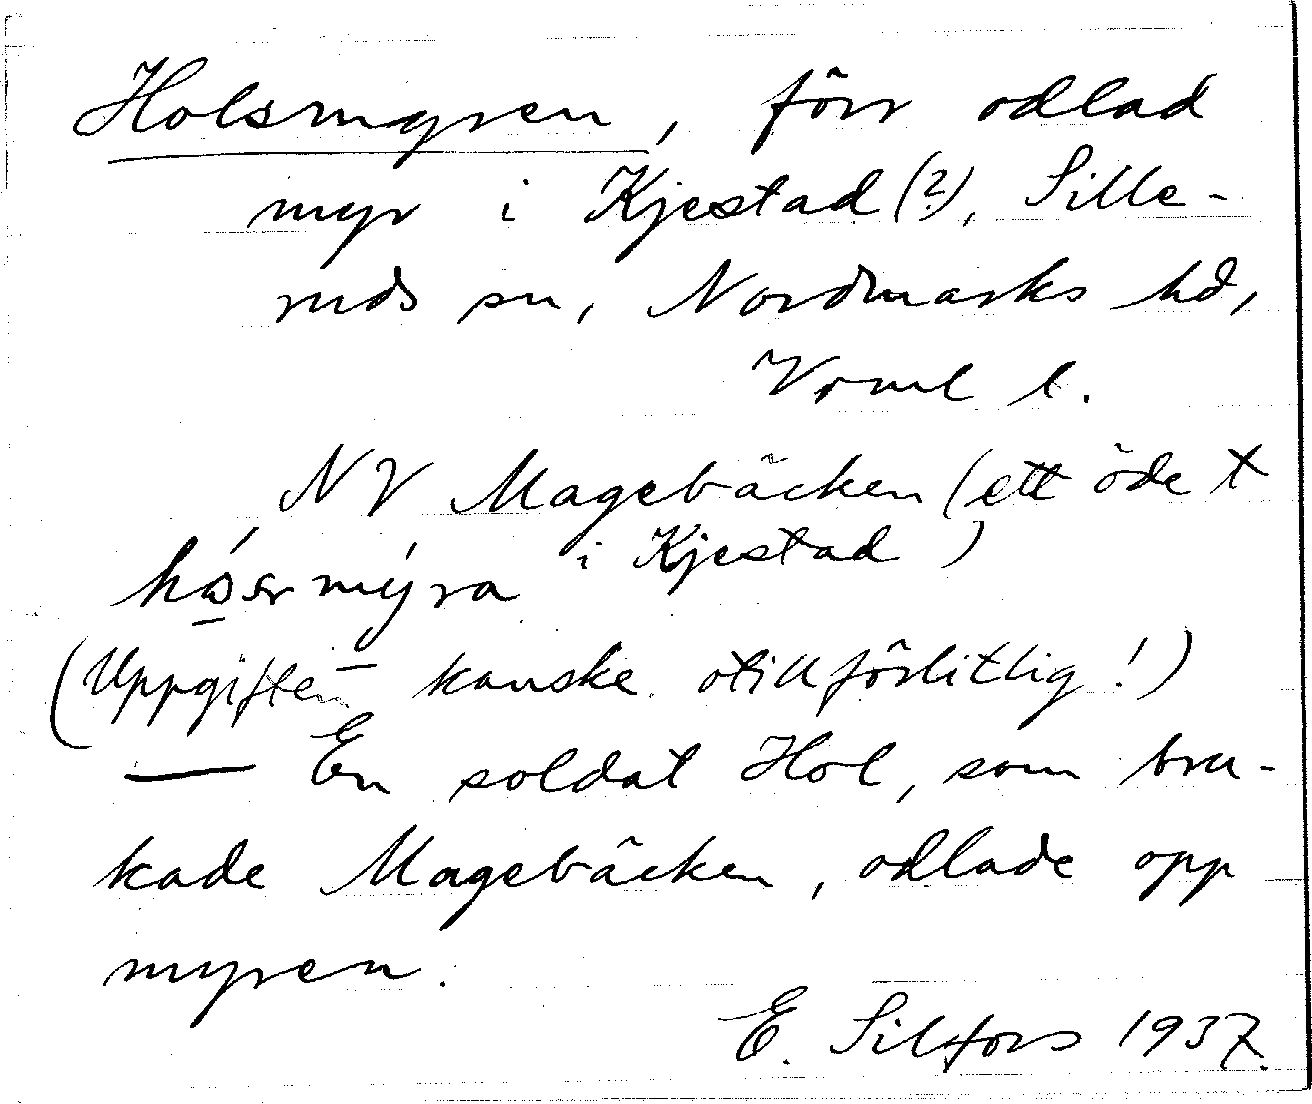 Holsmyren, förr odlad
myr i Kjestad (?), Sille-
ruds sn, Nordmarks hd,
Vrml l.
NV Magebäcken (ett öde t
i Kjestad)
(Uppgiften kanske otillförlitlig!)
— En soldat Hol, som bru-
kade Magebäcken, odlade opp
myren.
E. Silfors 1937.